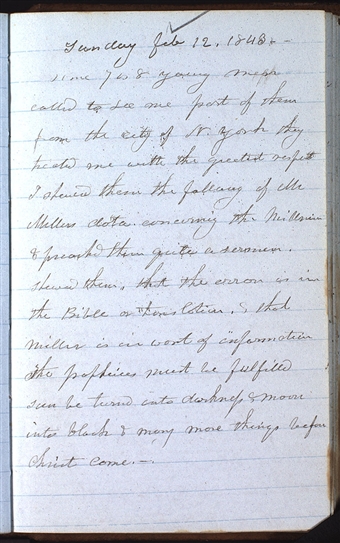 Sunday feb 12, 1843. -
some 7 or 8 young men
called to see me part of them
from the city of N. York they
treated me with the greatest respect
I shewed them the fallacy of Mr
Millers data concerning the Millenium
& preached them quite a sermon.
shewed them, that the error is in
the Bible or translation, & that
Miller is in want of information
The prophicies must be fulfilled
sun be turned into darkness & moon
into black & many more things before
Christ come. -